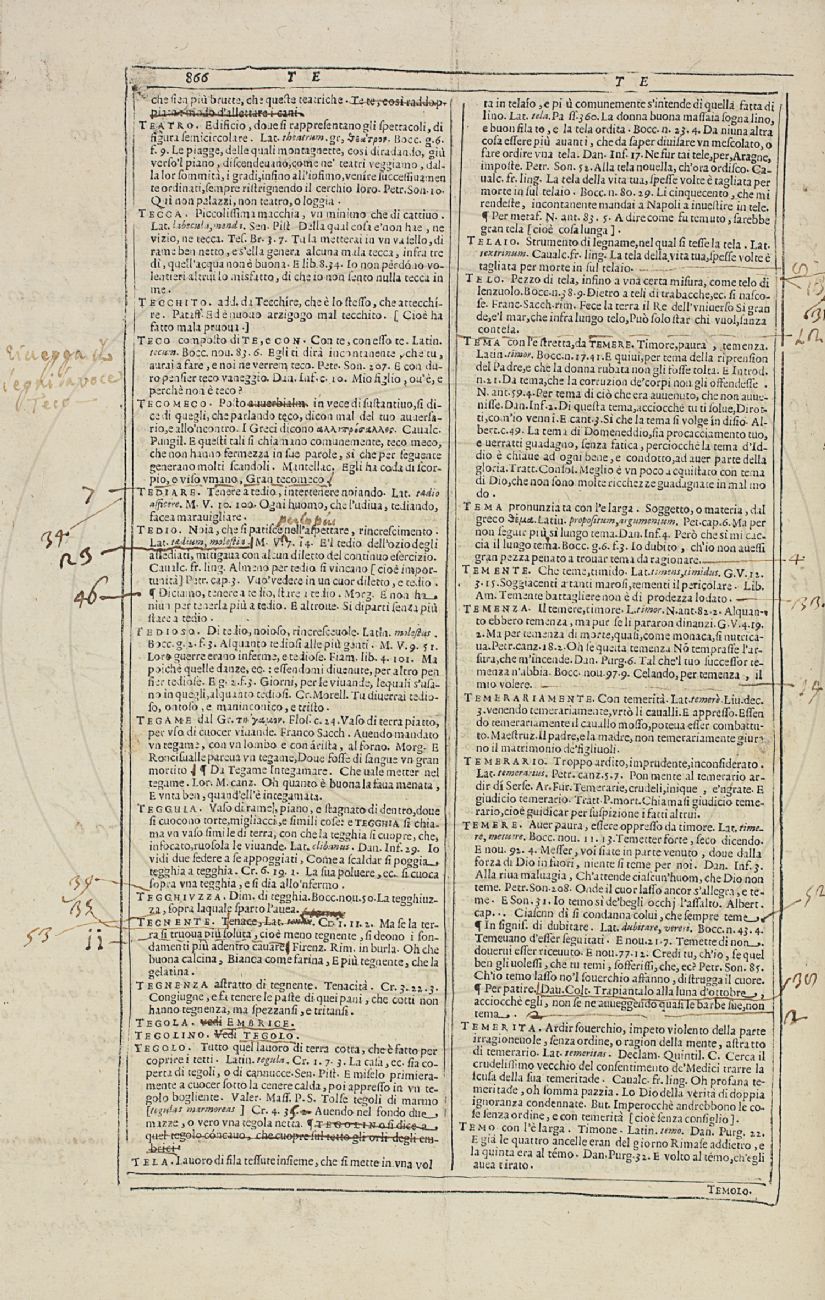 866 T E
T E
che sien più brutte, che queste teatriche. Te te, così raddop-
piato: modo d'allettare i cani.
TEATRO. Edificio, doue si rappresentano gli spettacoli, di
figura semicircolare. Lat. theatrum. gr. θέατρον. Bocc. g. 6.
f. 9. Le piagge, delle quali montagnette, così diradando, giù
verso'l piano, discendeuano, come ne' teatri veggiamo, dal-
la lor sommità, i gradi, infino all'infimo, venire successiuamen-
te ordinati, sempre ristrignendo il cerchio loro. Petr. Son. 10.
Quì non palazzi, non teatro, o loggia.
TECCA. Piccolissima macchia, vn minimo che di cattiuo.
Lat. labecula, menda. Sen. Pist. Della qual cosa e' non hae, ne
vizio, ne tecca. Tes. Br. 3. 7. Tu la metterai in vn vasello, di
rame ben netto, e s'ella genera alcuna mala tecca, infra tre
dì, quell'acqua non è buona. E lib. 8. 34. Io non perdono vo-
lentieri altrui lo misfatto, di che io non sento nulla tecca in
me.
TECCHITO. add. da Tecchire, che è lo stesso, che attecchi-
re. Pataff. Ed è nuouo arzigogo mal tecchito. [Cioè ha
fatto mala pruoua.]
TECO composto di TE, e CON. Con te, con esso te. Latin.
tecum. Bocc. nou. 83. 6. Egli ti dirà incontanente, che tu,
aurai a fare, e noi ne verrem teco. Petr. Son. 207. E con du-
ro pensier teco vaneggio. Dan. Inf. c. 10. Mio figlio, ou'è, e
perchè non è teco?
TECOMECO. Posto auuerbialm. in vece di sustantiuo, si di-
ce di quegli, che parlando teco, dicon mal del tuo auuersa-
rio, e allo'ncontro. I Greci dicono Cavalc.
Pungil. E questi tali si chiamano comunemente, teco meco,
che non hanno fermezza in sue parole, sì che per seguente
generano molti scandoli. Maestruzz. Egli ha coda di scor-
pio, e viso vmano, Gran tecomeco.
TEDIARE. Tenere a tedio, intertenere noiando. Lat. tædio
afficere. M. V. 10. 100. Ogni huomo, che l'udiua, tediando,
facea marauigliare.
TEDIO. Noia, che si patisce nell'aspettare, rincrescimento.
Lat. tædium, molestia. M. V. 7. 14. E'l tedio dell'ozio degli
assediati, mitigaua con alcun diletto del continuo esercizio.
Caualc. fr. ling. Almeno per tedio si vincano [cioè impor-
tunità] Petr. cap. 3. Vuo' vedere in un cuor diletto, e tedio.
¶ Diciamo, tenere a tedio, stare a tedio. Morg. E non ha
niun per tenerla più a tedio. E altroue. Si dipartì senza più
stare a tedio.
TEDIOSO. Di tedio, noioso, rincresceuole. Latin. molestus.
Bocc. g. 2. f. 3. Alquanto tediosi alle più genti. M. V. 9. 51.
Loro guerre erano inferme, e tediose. Fiam. lib. 4. 101. Ma
poichè quelle danze, ec. essendomi diuenute, per altro pen
sier tediose. E g. 2. f. 3. Giorni, per le viuande, le quali s'usa-
no in quegli, alquanto tediosi. Cr. Morell. Tu diuerrai tedio-
so, ontoso, e maninconico, e tristo.
TEGAME dal Gr. Flos. c. 24. Vaso di terra piatto,
per vso di cuocer viuande. Franco Sacch. Auendo mandato
vn tegame, con vn lombo e con arista, al forno. Morg. E
Roncisualle pareua vn tegame, Doue fosse di sangue vn gran
mortito. ¶ Da Tegame Integamare. Che uale metter nel
tegame. Lor. M. canz. Oh quanto è buona la faua menata,
E vnta ben, quand'ell'è integamata.
TEGGHIA. Vaso di rame, piano, e stagnato di dentro, doue
si cuocono torte, migliacci, e simili cose: e TEGGHIA si chia-
ma vn vaso simile di terra, con che la tegghia si cuopre, che,
infocato, ruosola le viuande. Lat. clibanus. Dan. Inf. 29. Io
vidi due sedere a se appoggiati, Come a scaldar si poggia
tegghia a tegghia. Cr. 6. 19. 1. La sua poluere, ec. si cuoca
sopra vna tegghia, e si dia allo'nfermo.
TEGGHIVZZA. Dim. di tegghia. Bocc. nou. 50. La tegghiuz-
za, sopra la quale sparto l'auea.
TEGNENTE. Tenace, Lat. Cr. 1. 11. 2. Ma se la ter-
ra si truoua più soluta, cioè meno tegnente, si deono i fon-
damenti più adentro cauare. Firenz. Rim. in burla. Oh che
buona calcina, Bianca come farina, E più tegnente, che la
gelatina.
TEGNENZA astratto di tegnente. Tenacità. Cr. 3. 22. 3.
Congiugne, e fa tenere le paste di quei pani, che cotti non
hanno tegnenza, ma spezzansi, e tritansi.
TEGOLA. vedi EMBRICE.
TEGOLINO. Vedi TEGOLO.
TEGOLO. Tutto quel lauoro di terra cotta, che è fatto per
coprire i tetti. Latin. tegula. Cr. 1. 7. 3. La casa, ec. sia co-
perta di tegoli, o di cannucce. Sen. Pist. E miselo primiera-
mente a cuocer sotto la cenere calda, poi appresso in vn te-
golo bogliente. Valer. Mass. P. S. Tolse tegoli di marmo
[tegulas marmoreas] Cr. 4. 35. 2. Auendo nel fondo due
mazze, o vero vna tegola netta. ¶ TEGOLINO si dice a
quel tegolo concauo, che cuopre sul tetto gli orli degli em-
brici.
TELA. Lauoro di fila tessute insieme, che si mette in vna vol
ta in telaso, e più comunemente s'intende di quella fatta di
lino. Lat. tela. Pa ff. 360. La donna buona massaia sogna lino,
e buon filato, e la tela ordita. Bocc. n. 23. 4. Da niuna altra
cosa essere più auanti, che da saper diuisare vn mescolato, o
fare ordire vna tela. Dan. Inf. 17. Ne fur tai tele, per, Aragne,
imposte. Petr. Son. 32. Alla tela nouella, ch'ora ordisco. Ca-
ualc. fr. ling. La tela della vita tua, spesse volte è tagliata per
morte in sul telaio. Bocc. n. 80. 29. Li cinquecento, che mi
rendeste, incontanente mandai a Napoli a inuestire in tele.
¶ Per metaf. N. ant. 83. 5. A dire come fu temuto, sarebbe
gran tela [cioè cosa lunga].
TELAIO. Strumento di legname, nel qual si tesse la tela. Lat.
textrinum. Caualc. fr. ling. La tela della, vita tua, spesse volte è
tagliata per morte in sul telaio.
TELO. Pezzo di tela, infino a vna certa misura, come telo di
lenzuolo. Bocc. n. 38. 9. Dietro a teli di trabacche, ec. si nasco-
se. Franc. Sacch. rim. Fece la terra il Re dell'vniuerso Si gran
de, e'l mar, che infra lungo telo, Può solo star chi vuol, sanza
contesa.
TEMA con l'e stretta, da TEMERE. Timore, paura, temenza.
Latin. timor. Bocc. n. 17. 41. E quiui, per tema della riprension
del Padre, e che la donna rubata non gli fosse tolta. E Introd.
n. 21. Da tema, che la corruzion de' corpi non gli offendesse.
N. ant. 59. 4. Per tema di ciò che era auuenuto, che non auue-
nisse. Dan. Inf. 2. Di questa tema, acciocchè tu ti solue, Dirot-
ti, com'io venni. E cant. 3. Sì che la tema si volge in disio. Al-
bert. c. 49. La tema di Domeneddio, sia procacciamento tuo,
e uerratti guadagno, senza fatica, perciocchè la tema d'Id-
dio è chiaue ad ogni bene, e condotto, ad auer parte della
gloria. Tratt. Consol. Meglio è vn poco acquistato con tema
di Dio, che non sono molte ricchezze guadagnate in mal mo
do.
TEMA pronunziata con l'e larga. Soggetto, o materia, dal
greco θέμα. Latin. propositum, argumentum. Pet. cap. 6. Ma per
non seguir più sì lungo tema. Dan. Inf. 4. Però che sì mi cac-
cia il lungo tema. Bocc. g. 6. f. 3. Io dubito, ch'io non auessi
gran pezza penato a trouar tema da ragionare.
TEMENTE. Che teme, timido. Lat. timens, timidus. G. V. 12.
3. 15. Soggiacenti a tanti marosi, tementi il pericolare. Lib.
Am. Temente battagliere non è di prodezza lodato.
TEMENZA. Il temere, timore. L. timor. N. ant. 82. 2. Alquan-
to ebbero temenza, ma pur se li pararon dinanzi. G. V. 4. 19.
2. Ma per temenza di morte, quasi, come monaca, si nutrica-
ua. Petr. canz. 18. 2. Oh se questa temenza Nō temprasse l'ar-
sura, che m'incende. Dan. Purg. 6. Tal che'l tuo successor te-
menza n'abbia. Bocc. nou. 97. 9. Celando, per temenza, il
mio volere.
TEMERARIAMENTE. Con temerità. Lat. temerè. Liu. dec.
3. venendo temerariamente, vrtò li caualli. E appresso. Essen
do temerariamente il cauallo mosso, poteua esser combattu-
to. Maestruz. Il padre, e la madre, non temerariamente giura-
no il matrimonio de' figliuoli.
TEMERARIO. Troppo ardito, imprudente, inconsiderato.
Lat. temerarius. Petr. canz. 5. 7. Pon mente al temerario ar-
dir di Serse. Ar. Fur. Temerarie, crudeli, inique, e'ngrate. E
giudicio temerario. Tratt. P. mort. Chiamasi giudicio teme-
rario, cioè guidicar per suspizione i fatti altrui.
TEMERE. Auer paura, essere oppresso da timore. Lat. time-
re, metuere. Bocc. nou. 11. 13. Temetter forte, seco dicendo.
E nou. 92. 4. Messer, voi siate in parte venuto, doue dalla
forza di Dio in fuori, niente si teme per noi. Dan. Inf. 3.
Alla riua maluagia, Ch'attende ciascun'huom, che Dio non
teme. Petr. Son. 208. Onde il cuor lasso ancor s'allegra, e te-
me. E Son. 31. Io temo sì de' begli occhi l'assalto. Albert.
cap... Ciascun dì si condanna colui, che sempre teme.
¶ In signif. di dubitare. Lat. dubitare, vereri. Bocc. n. 43. 4.
Temeuano d'esser seguitati. E nou. 21. 7. Temette di non
douerui esser riceuuto. E nou. 77. 12. Credi tu, ch'io, se quel
ben gli uolessi, che tu temi, sofferissi, che, ec? Petr. Son. 85.
Ch'io temo lasso no'l souerchio affanno, distrugga il cuore.
¶ Per patire. Dau. Colt. Trapiantalo alla luna d'ottobre,
acciocchè egli, non se ne auueggendo quasi le barbe sue, non
tema.
TEMERITA. Ardir souerchio, impeto violento della parte
irragioneuole, senza ordine, o ragion della mente, astratto
di temerario. Lat. temeritas. Declam. Quintil. C. Cerca il
crudelissimo vecchio del consentimento de' Medici trarre la
scusa della sua temeritade. Caualc. fr. ling. Oh profana te-
meritade, oh somma pazzia. Lo Dio della verità di doppia
ignoranza condennate. But. Imperocchè andrebbono le co-
se senza ordine, e con temerità [cioè senza consiglio].
TEMO con l'è larga. Timone. Latin. temo. Dan. Purg. 22.
E già le quattro ancelle eran del giorno Rimase addietro, e
la quinta era al témo. Dan. Purg. 32. E volto al témo, ch'egli
auea tirato.
TEMOLO.
7
34
23
46
39
35
53
11
4
52
2